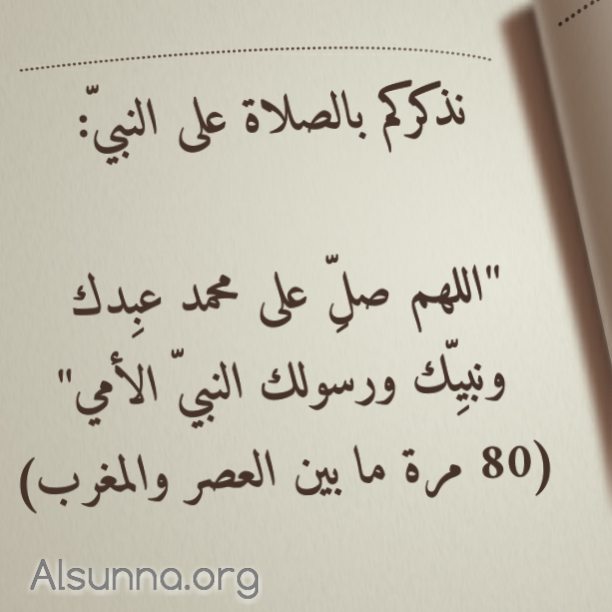 نذكركم بالصلاة على النبيّ:
"اللهم صلِّ على محمد عبدِك
ونبيِّك ورسولك النبيّ الأمي"
(80 مرة ما بين العصر والمغرب)
Alsunna.org